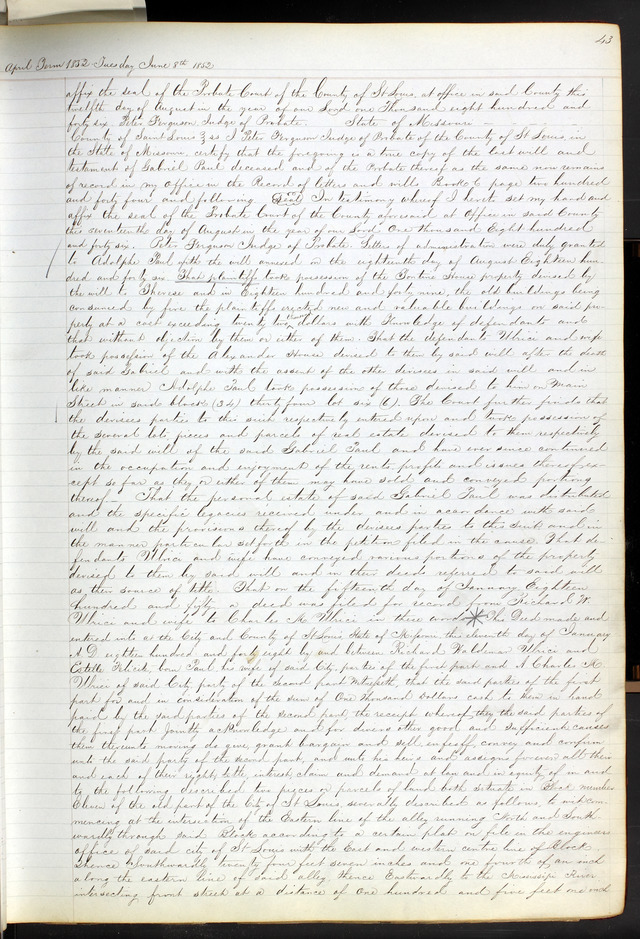 43
April Term 1852 Tuesday June 8th 1852
affix the seal of the Probate Court of the County of St Louis, at office in said County this
twelfth day of August in the year of our Lord one Thousand eight hundred and
forty six. Peter Ferguson Judge of Probate. State of Missouri
County of Saint Louis } ss I Peter Ferguson Judge of Probate of the County of St Louis in
the State of Missouri certify that the foregoing is a true copy of the last will and
testament of Gabriel Paul deceased and of the Probate thereof as the same now remains
of record in my Office in the Record of letters and wills Book C page two hundred
and forty four and following Seal In testimony whereof I hereto set my hand and
affix the seal of the Probate Court of the County aforesaid at Office in said County
this seventeenth day of August in the year of our Lord One thousand Eight hundred
and forty six. Peter Ferguson Judge of Probate. Letters of administration were duly granted
to Adolphe Paul with the will annexed on the eighteenth day of August Eighteen hun
dred and forty six. That plaintiffs took possession of the House property devised by
the will to Therese and in Eighteen hundred and forty nine, the old buildings being
consumed by fire the plaintiffs erected new and valuable buildings on said pro
perty at a cost exceeding twenty two dollars with Knowledge of defendants and
that without objection by them or either of them. That the defendants Ulrici and wife
took possession of the Alexander House devised to them by said will after the death
of said Gabriel and with the assent of the other devisees in said will and in
like manner Adolph Paul took possession of those devised to him on Main
Street in said block (34) thirty four lot six (6). The Court further finds that
the devisees parties to this suit respectively entered upon and took possession of
the several lots, pieces and parcels of real estate devised to them respectively
by the said will of the said Gabriel Paul and have ever since continued
in the occupation and enjoyment of the rents, profits and issues thereof ex-
cept so far as they or either of them may have sold and conveyed portions
thereof. That the personal estate of said Gabriel Paul was distributed
and the specific legacies received under and in accordance with said
will and the provisions thereof by the devisees parties to this suit and in
the manner particular set forth in the petition filed in the cause. That de-
fendants Ulrici and wife have conveyed various portions of the property
devised to them by said will and in their deeds referred to said will
as their source of title. That on the fifteenth day of January Eighteen
hundred and fifty a deed was filed for record from Richard W.
Ulrici and wife to Charles M Ulrici in these words The Deed made and
entered into a the City and County of St Louis State of Missouri this eleventh day of January
A D. eighteen hundred and forty eight by and between Richard Waldemar Ulrici and
Estelle born Paul his wife of said City, parties of the first part and A Charles M
Ulrici of said City, party of the second part Witnesseth, that the said parties of the first
part for and in consideration of the sum of One Thousand Dollars cash to them in hand
paid by the said parties of the second part, the receipt whereof they the said parties of
the first part jointly acknowledge and for divers other good and sufficient causes
them thereunto moving do give, grant bargain and sell, enfeoff, convey and confirm
unto the said party of the second part, and unto his heirs and assigns forever all their
and each of their right, title, interest, claim and demand at law and in equity of in and
to the following described two pieces or parcels of land both situate in Block number
Eleven of the old part of the City of St Louis, severally described as follows, to wit: com-
mencing at the intersection of the Eastern line of the alley running North and South
wardly through said Block according to a certain plat on file in the engineers
office of said city of St Louis with the East and western centre line of Block
thence Southwardly twenty four feet seven inches and one fourth of an inch
along the eastern line of said alley thence Eastwardly to the Mississippi River
intersecting front street at a distance of One hundred and five feet one inch